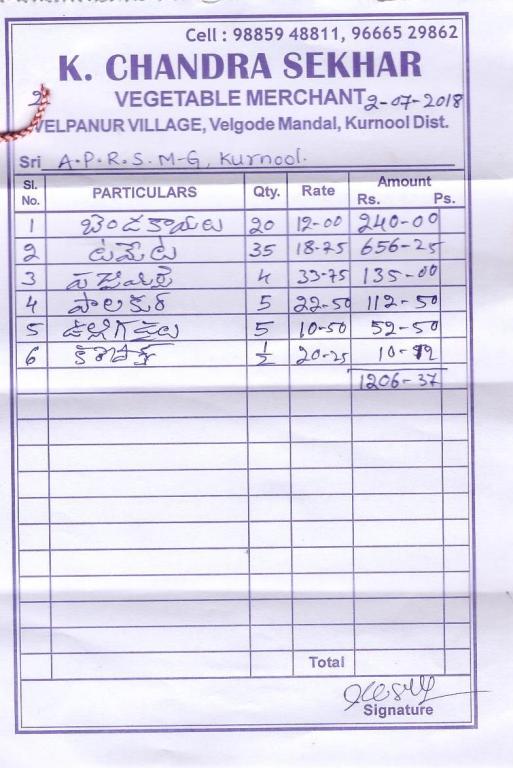 Cell : 98859 48811, 96665 29862
K. CHANDRA SEKHAR
VEGETABLE MERCHANT 2-07-2018
VELPANUR VILLAGE, Velgode Mandal, Kurnool Dist.
Sri A.P.R.S. M-G, Kurnool.
Sl. No. PARTICULARS Qty. Rate Amount Rs. Ps.
1 బెండకాయలు 20 12-00 240-00
2 టమేట 35 18-75 656-25
3 4 33-75 135-00
4 పాలకుర 5 22-50 112-50
5 ఉల్లిగడ్డలు 5 10-50 52-50
6 ½ 20-25 10-12
1206-37
Total
Signature